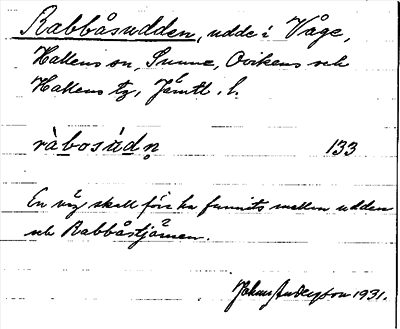 Rabbåsudden, udde i Våge,
Hallens sn, Sunne, Ovikens och
Hallens tg, Jämtl. l.
ràbosùdṇ 133
En väg skall förr ha funnits mellan udden
och Rabbåstjärnen.
Johan Anderson 1931.